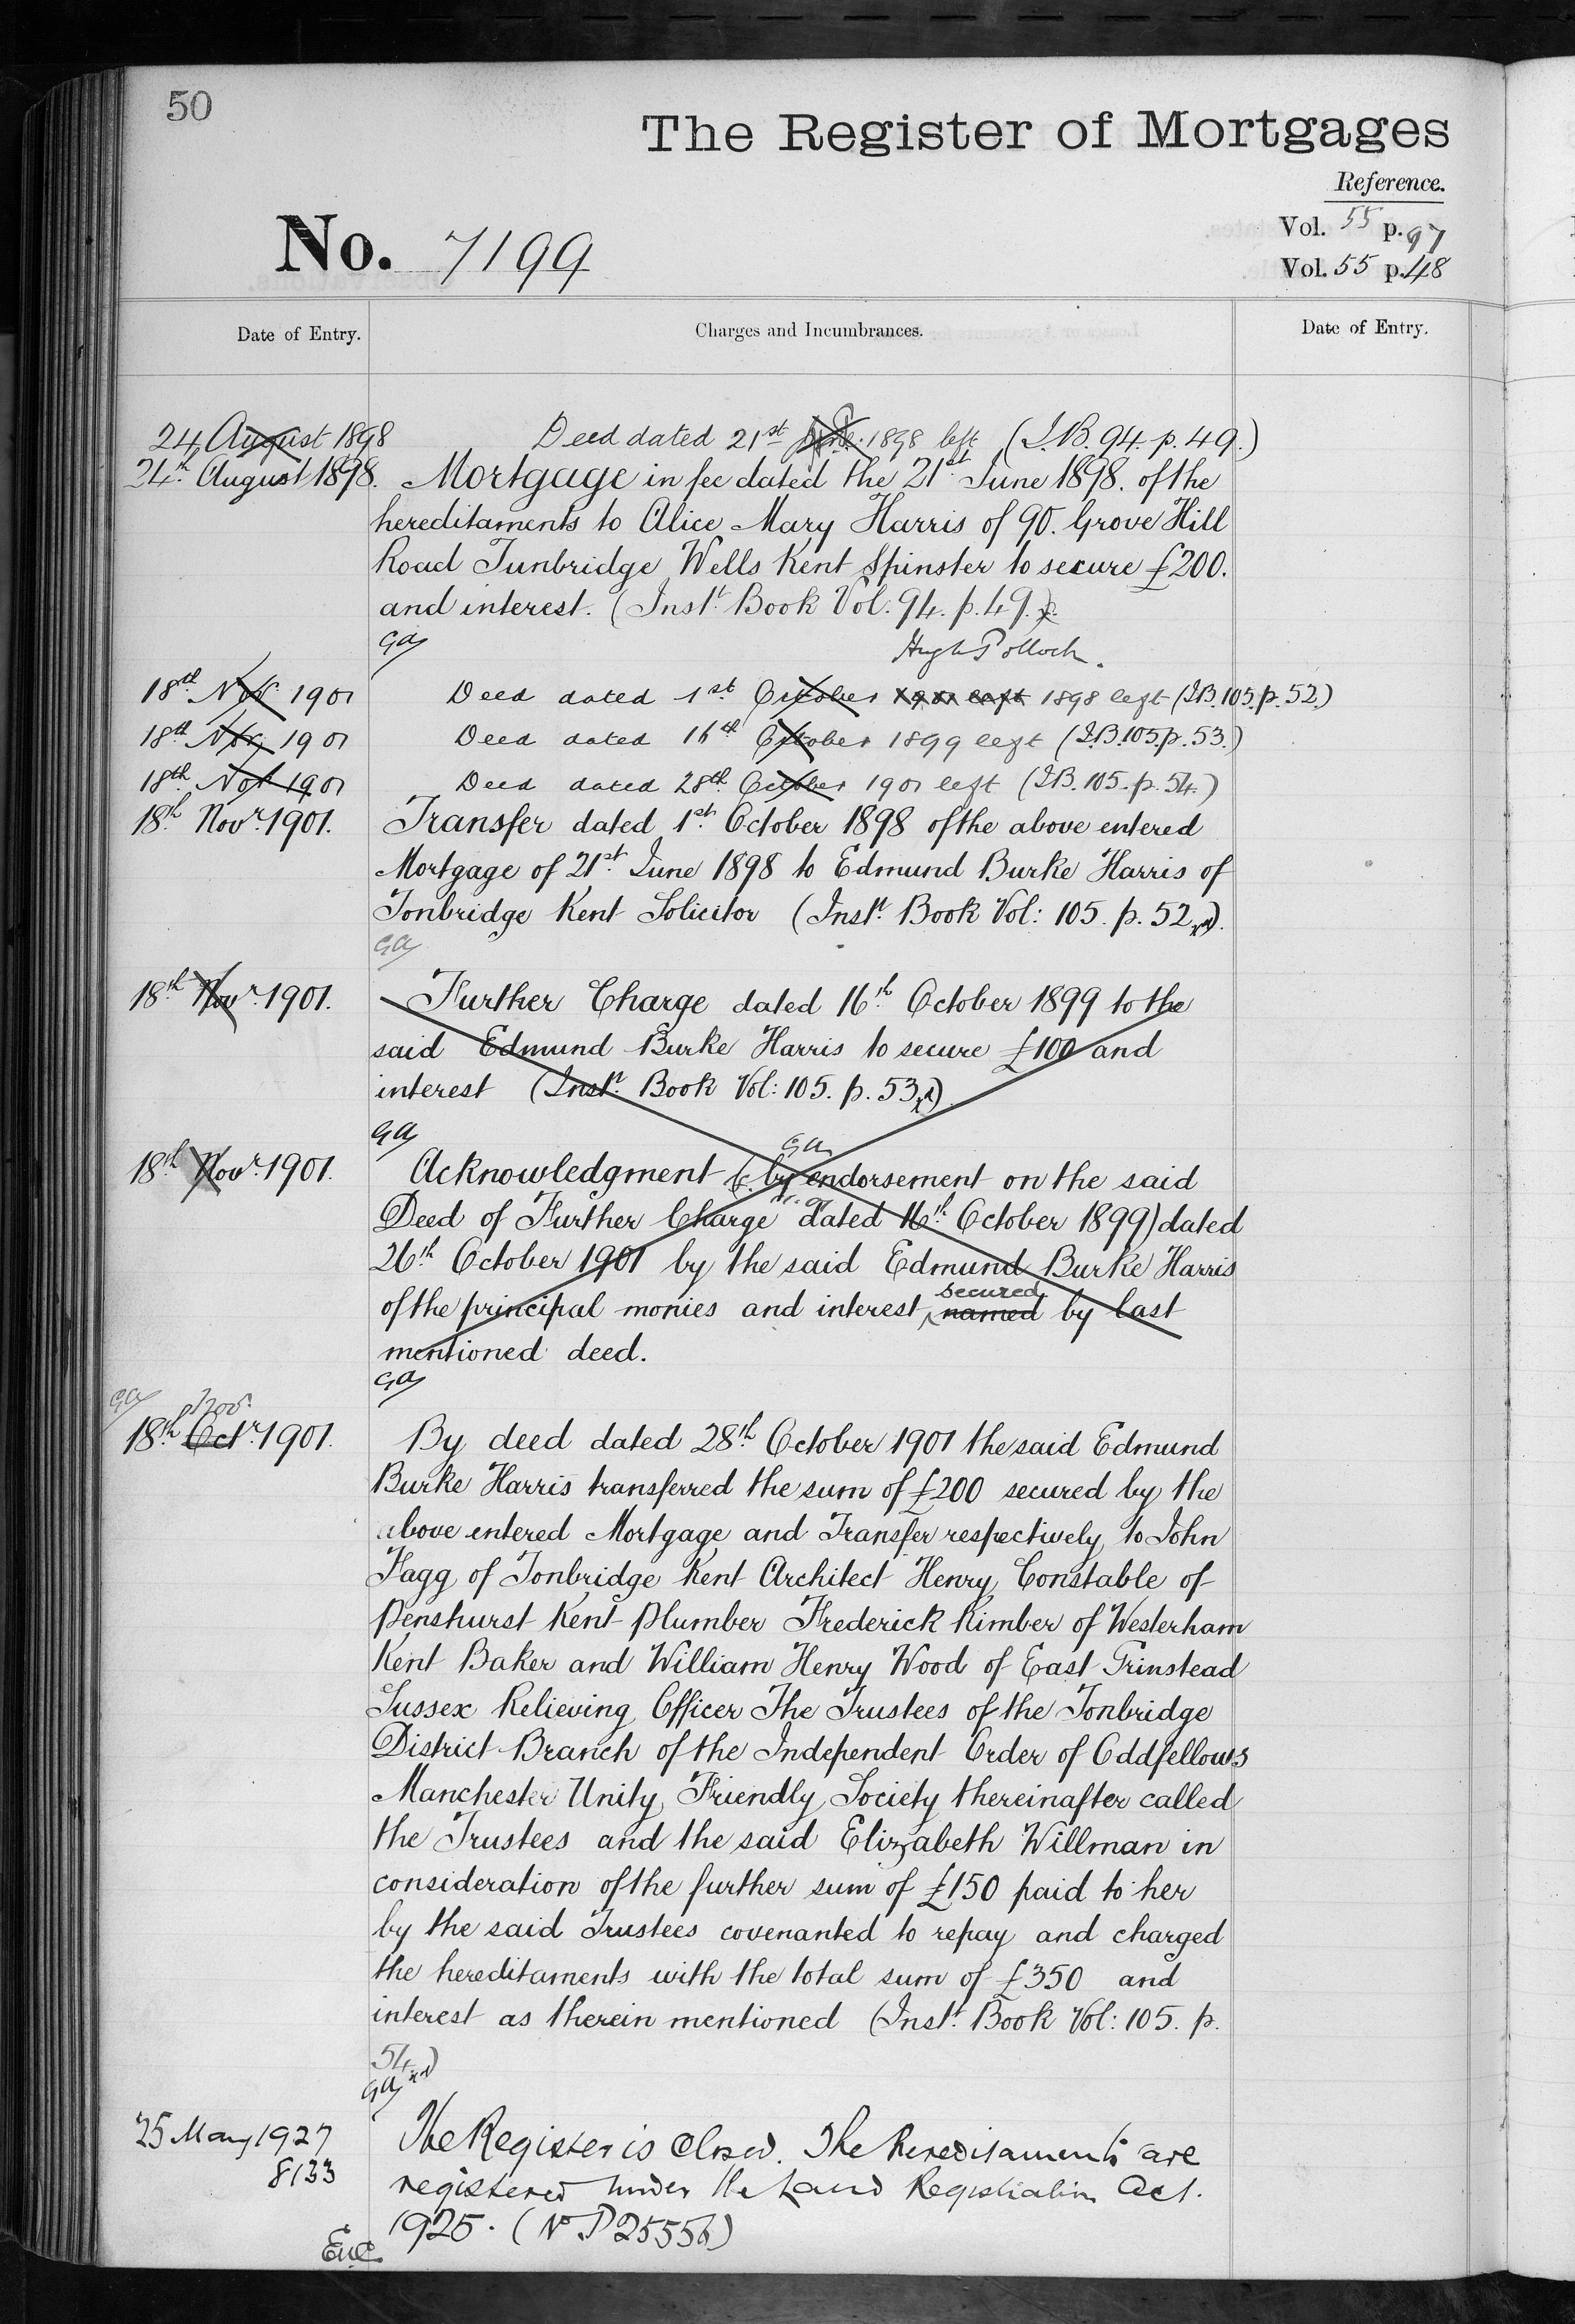 50
The Register of Mortgages
Reference.
No. 7199
Vol. 55 p. 97
Vol. 55 p. 48
Date of Entry.
Charges and Incumbrances.
Date of Entry.
24 August 1898 Deed dated 21st June 1898 left (I.B. 94. p. 49.)
24th August 1898. Mortgage in fee dated the 21st June 1898. of the
hereditaments to Alice Mary Harris of 90. Grove Hill
Road Tunbridge Wells Kent Spinster to secure £200.
and interest. (Instt. Book Vol. 94. p. 49.)
GA Hugh Pollock.
18th Nov. 1901 Deed dated 1st October 1901 left 1898 left (I.B. 105. p. 52.)
18th Nov. 1901 Deed dated 16th October 1899 left (I.B. 105. p. 53.)
18th Nov. 1901 Deed dated 28th October 1901 left (I.B. 105. p. 54.)
18th Novr. 1901. Transfer dated 1st. October 1898 of the above entered
Mortgage of 21st. June 1898 to Edmund Burke Harris of
Tonbridge Kent Solicitor (Instt. Book Vol: 105. p. 52).
GA
18th Novr. 1901. Further Charge dated 16th October 1899 to the
said Edmund Burke Harris to secure £100 and
interest (Instt. Book Vol: 105. p. 53).
GA
GA
18th Novr. 1901. Acknowledgment (by endorsement on the said
Deed of Further Charge dated 16th October 1899) dated
26th October 1901 by the said Edmund Burke Harris
secured
of the principal monies and interest named by last
mentioned deed.
GA
GA Nov.
18th Octr. 1901. By deed dated 28th October 1901 the said Edmund
Burke Harris transferred the sum of £200 secured by the
above entered Mortgage and Transfer respectively to John
Fagg of Tonbridge Kent Architect Henry Constable of
Penshurst Kent Plumber Frederick Kimber of Westerham
Kent Baker and William Henry Wood of East Grinstead
Sussex Relieving Officer The Trustees of the Tonbridge
District Branch of the Independent Order of Oddfellows
Manchester Unity Friendly Society thereinafter called
the Trustees and the said Elizabeth Willman in
consideration of the further sum of £150 paid to her
by the said Trustees covenanted to repay and charged
the hereditaments with the total sum of £350 and
interest as therein mentioned (Instt. Book Vol: 105. p.
54)
GA
25 May 1927 The Register is closed. The hereditaments are
8133 registered under the Land Registration Act.
1925. (No P 25556)